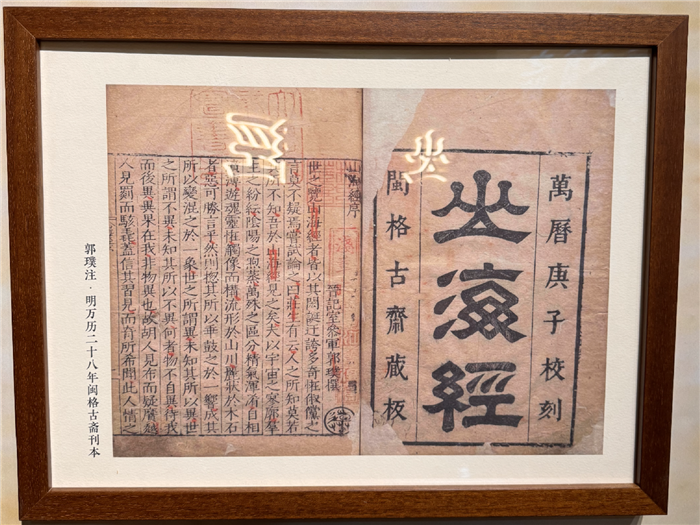 萬曆庚子校刻
山海經
閩格古齋蔵板
山海經序
晉記室參軍郭璞撰
世之覽山海經者皆以其閎誕迂誇多奇怪俶儻之
言莫不疑焉嘗試論之曰莊生有云人之所知莫若
其所不知吾於山海經見之矣夫以宇宙之寥廓羣
生之紛紜陰陽之喣蒸萬殊之區分精氣渾淆自相
濆薄遊魂靈怪觸像而構流形於山川麗狀於木石
者惡可勝言乎然則摠其所以乖鼓之於一響成其
所以變混之於一象世之所謂異未知其所以異世
之所謂不異未知其所以不異何者物不自異待我
而後異異果在我非物異也故胡人見布而疑黂越
人見罽而駭毳蓋信其習見而奇所希聞此人情之
郭璞注·明万历二十八年闽格古斋刊本